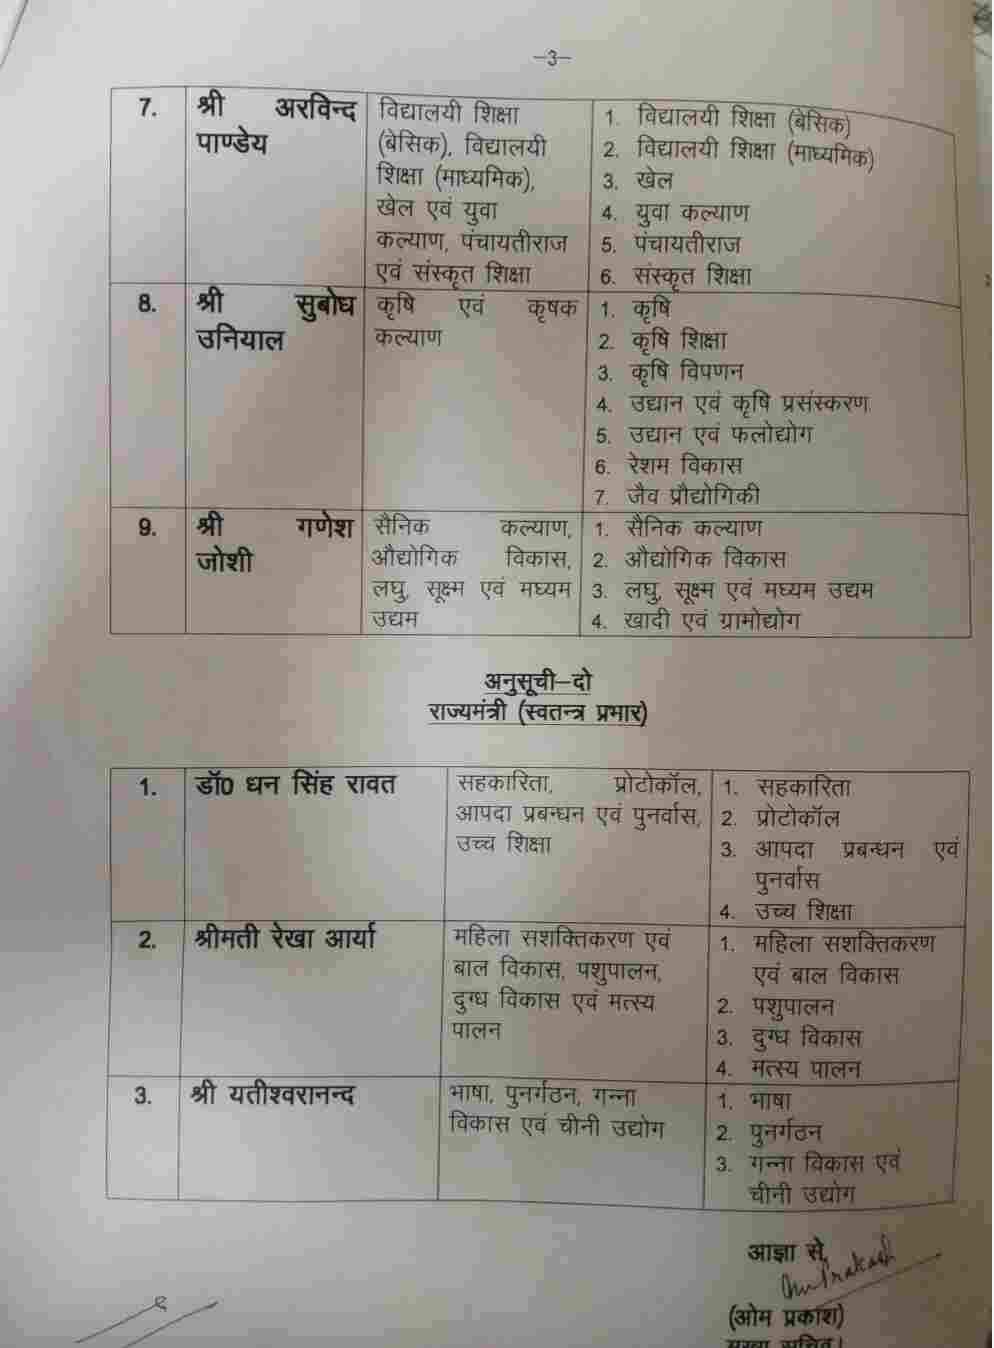 –3–
7. श्री अरविन्द पाण्डेय
विद्यालयी शिक्षा
(बेसिक), विद्यालयी
शिक्षा (माध्यमिक),
खेल एवं युवा
कल्याण, पंचायतीराज
एवं संस्कृत शिक्षा
1. विद्यालयी शिक्षा (बेसिक)
2. विद्यालयी शिक्षा (माध्यमिक)
3. खेल
4. युवा कल्याण
5. पंचायतीराज
6. संस्कृत शिक्षा
8. श्री सुबोध
उनियाल
कृषि एवं कृषक
कल्याण
1. कृषि
2. कृषि शिक्षा
3. कृषि विपणन
4. उद्यान एवं कृषि प्रसंस्करण
5. उद्यान एवं फलोद्योग
6. रेशम विकास
7. जैव प्रौद्योगिकी
9. श्री गणेश
जोशी
सैनिक कल्याण,
औद्योगिक विकास,
लघु, सूक्ष्म एवं मध्यम
उद्यम
1. सैनिक कल्याण
2. औद्योगिक विकास
3. लघु, सूक्ष्म एवं मध्यम उद्यम
4. खादी एवं ग्रामोद्योग
अनुसूची–दो
राज्यमंत्री (स्वतन्त्र प्रभार)
1. डॉ0 धन सिंह रावत
सहकारिता, प्रोटोकॉल,
आपदा प्रबन्धन एवं पुनर्वास,
उच्च शिक्षा
1. सहकारिता
2. प्रोटोकॉल
3. आपदा प्रबन्धन एवं
पुनर्वास
4. उच्च शिक्षा
2. श्रीमती रेखा आर्या
महिला सशक्तिकरण एवं
बाल विकास, पशुपालन,
दुग्ध विकास एवं मत्स्य
पालन
1. महिला सशक्तिकरण
एवं बाल विकास
2. पशुपालन
3. दुग्ध विकास
4. मत्स्य पालन
3. श्री यतीश्वरानन्द
भाषा, पुनर्गठन, गन्ना
विकास एवं चीनी उद्योग
1. भाषा
2. पुनर्गठन
3. गन्ना विकास एवं
चीनी उद्योग
आज्ञा से,
Om Prakash
(ओम प्रकाश)
मुख्य सचिव।